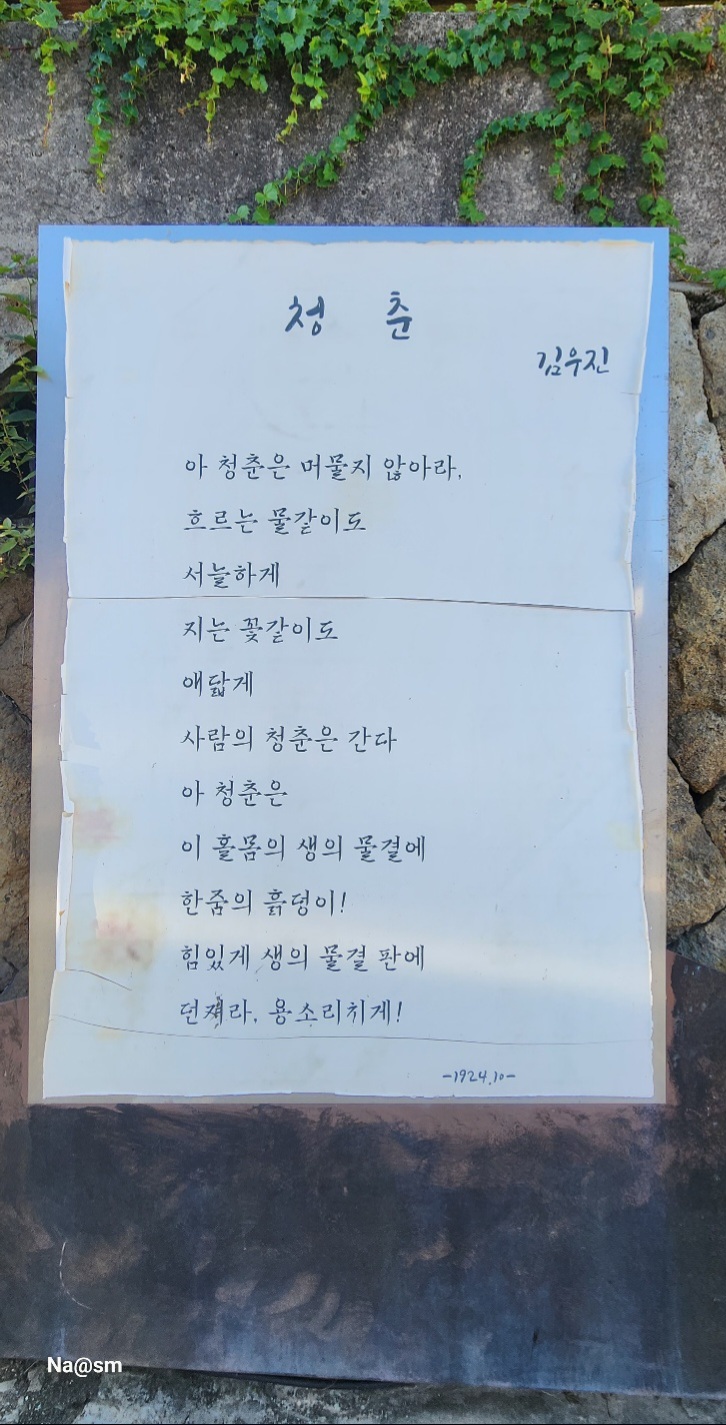 청 춘
김우진
아 청춘은 머물지 않아라,
흐르는 물같이도
서늘하게
지는 꽃같이도
애닯게
사람의 청춘은 간다
아 청춘은
이 홀몸의 생의 물결에
한줌의 흙덩이!
힘있게 생의 물결 판에
용소리치게!
-1924.10-
Na@sm